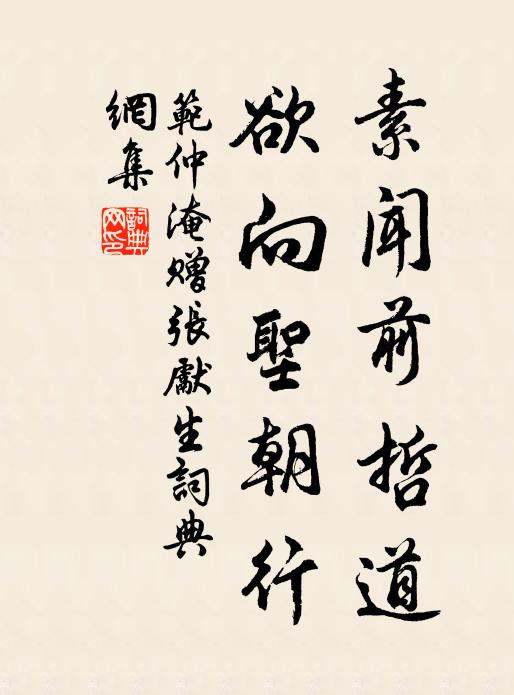 素聞前哲道
欲向聖朝行
範仲淹贈張獻生詞典
網集
詞典
网印